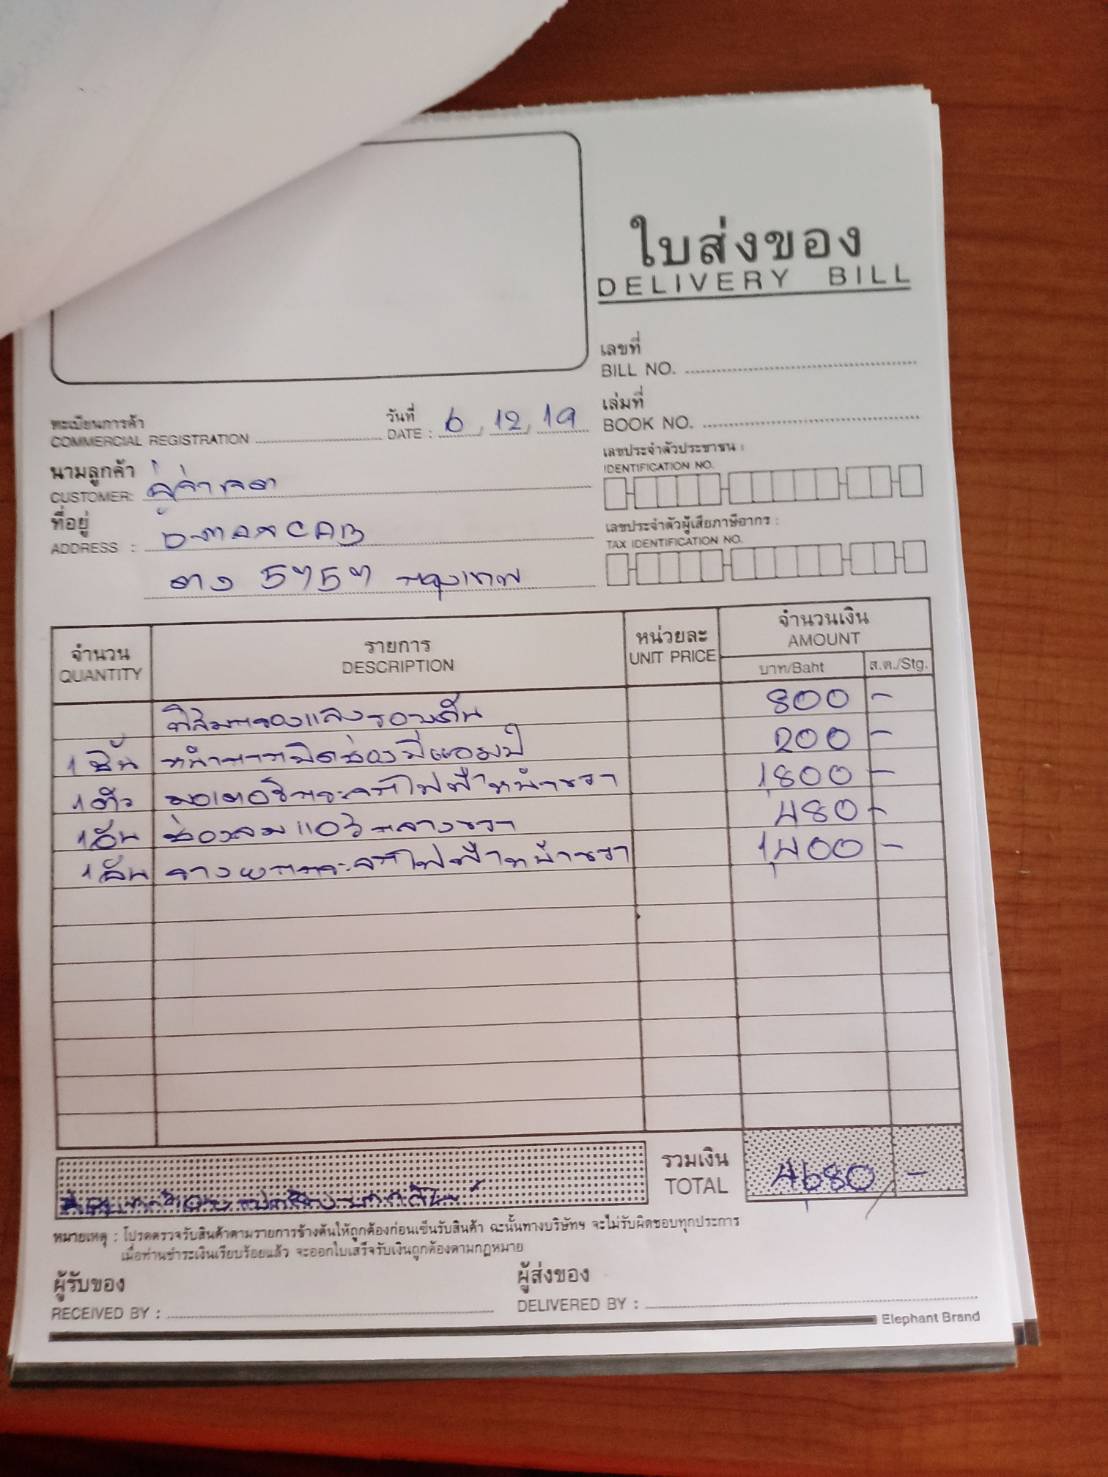 ใบส่งของ
DELIVERY BILL
เลขที่
BILL NO.
ทะเบียนการค้า
COMMERCIAL REGISTRATION
วันที่
DATE : 6, 12, 19
เล่มที่
BOOK NO.
นามลูกค้า
CUSTOMER:
เลขประจำตัวประชาชน :
IDENTIFICATION NO.
ที่อยู่
ADDRESS : D-MAX CAB
5757 กรุงเทพ
เลขประจำตัวผู้เสียภาษีอากร :
TAX IDENTIFICATION NO.
จำนวน
QUANTITY
รายการ
DESCRIPTION
หน่วยละ
UNIT PRICE
จำนวนเงิน
AMOUNT
บาท/Baht
ส.ต./Stg.
800 -
1 ชิ้น 200 -
1 ตัว 1,800 -
1 อัน ช่องลมแอร์กลางขวา 480 -
1 อัน 1,400 -
รวมเงิน
TOTAL
4,680 -
หมายเหตุ : โปรดตรวจรับสินค้าตามรายการข้างต้นให้ถูกต้องก่อนเซ็นรับสินค้า ฉะนั้นทางบริษัทฯ จะไม่รับผิดชอบทุกประการ
เมื่อท่านชำระเงินเรียบร้อยแล้ว จะออกใบเสร็จรับเงินถูกต้องตามกฎหมาย
ผู้รับของ
RECEIVED BY :
ผู้ส่งของ
DELIVERED BY :
Elephant Brand